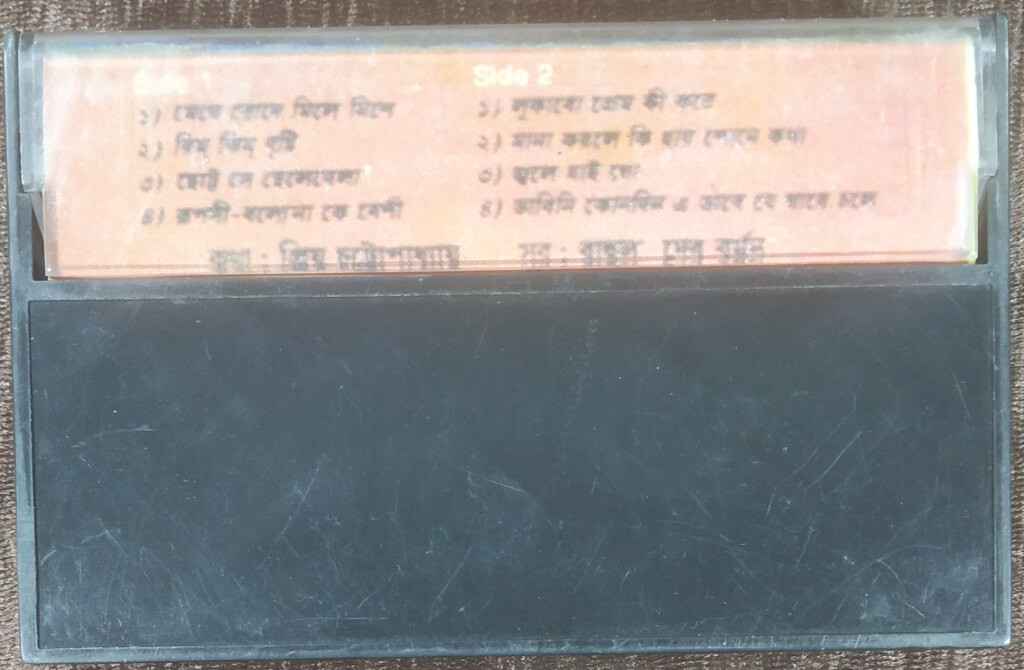 Side 1
১) মেঘে রোদে মিলে মিশে
২) রিম্ ঝিম্ বৃষ্টি
৩) ছোট্ট সে ছেলেবেলা
৪) রূপসী-বলোনা কে বেশী
Side 2
১) লুকাবো চোখ কী করে
২) মানা করলে কি হায় শোনে কথা
৩) ভুলে যাই গো
৪) ভাবিনি কোনদিন এ ভাবে যে যাবে চলে
কথা : চট্টোপাধ্যায় সুর : দেব বর্মন